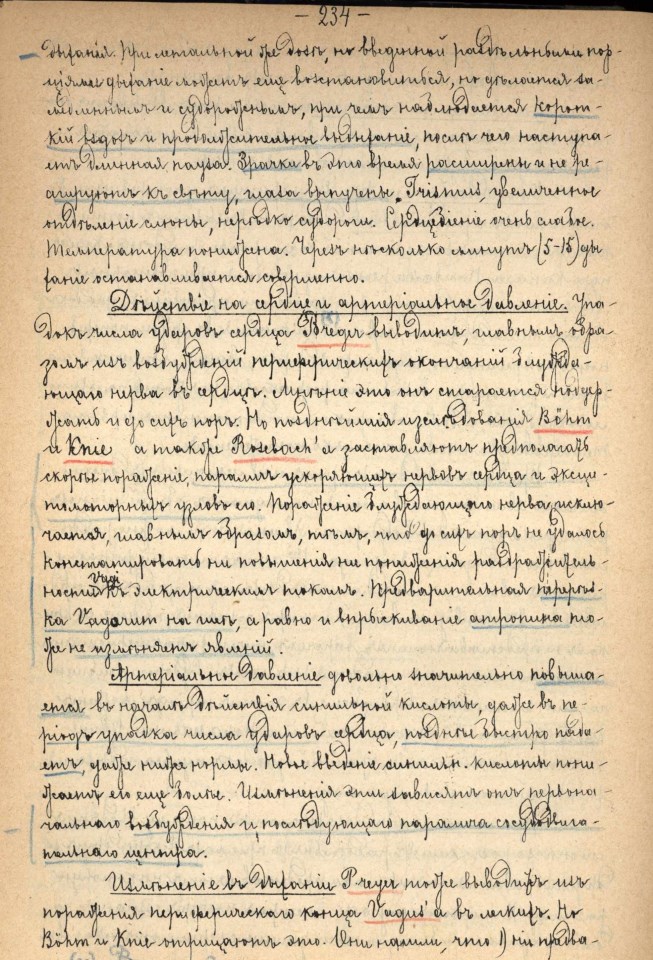 — 234 —
дыханія. При летальной же дозѣ, но введенной раздѣльными пор-
ціями дыханіе можетъ еще возстановиться, но дѣлается за-
медленнымъ и судорожнымъ, при чемъ наблюдается корот-
кій вздохъ и продолжительное выдыханіе, послѣ чего наступа-
етъ длинная пауза. Зрачки въ это время расширены и не ре-
агируютъ къ свѣту, глаза выпучены, Trismus, увеличенное
отдѣленіе слюны, нерѣдко судороги. Сердцебіеніе очень слабое.
Температура понижена. Черезъ нѣсколько минутъ (5-15) ды
ханіе останавливается совершенно.
Дѣйствіе на сердце и артеріальное давленіе. Упа-
докъ числа ударовъ сердца Preyer выводитъ, главнымъ обра-
зомъ изъ возбужденій периферическихъ окончаній блужда-
ющаго нерва въ сердцѣ. Мнѣніе это онъ старается подде
ржать и до сихъ поръ. Но позднѣйшія изслѣдованія Böhm
и Knie а также Rosebach'а заставляютъ предполагать
скорѣе пораженіе, параличъ ускоряющихъ нервовъ сердца и эксци-
томоторныхъ узловъ его. Пораженіе блуждающаго нерва исклю-
чается, главнымъ образомъ, тѣмъ, что до сихъ поръ не удалось
констатировать ни повышенія ни пониженія раздражитель-
ности Vagi къ электрическимъ токамъ. Предварительная перерѣз-
ка Vagorum на шеѣ, а равно и впрыскиваніе атропина то-
же не измѣняетъ явленій.
Артеріальное давленіе довольно значительно повыша-
ется въ началѣ дѣйствія синильной кислоты, даже въ пе-
ріодъ упадка числа ударовъ сердца, позднѣе быстро пада-
етъ, даже ниже нормы. Новое введеніе синильн. кислоты пони-
жаетъ его еще болѣе. Измѣненія эти зависятъ отъ первона-
чальнаго возбужденія и послѣдующаго паралича сосудодвига-
тельнаго центра.
Измѣненіе въ дыханіи Preyer тоже выводитъ изъ
пораженія периферическаго конца Vagus'а въ легкихъ. Но
Böhm и Knie отрицаютъ это. Они нашли, что 1) ни предва-